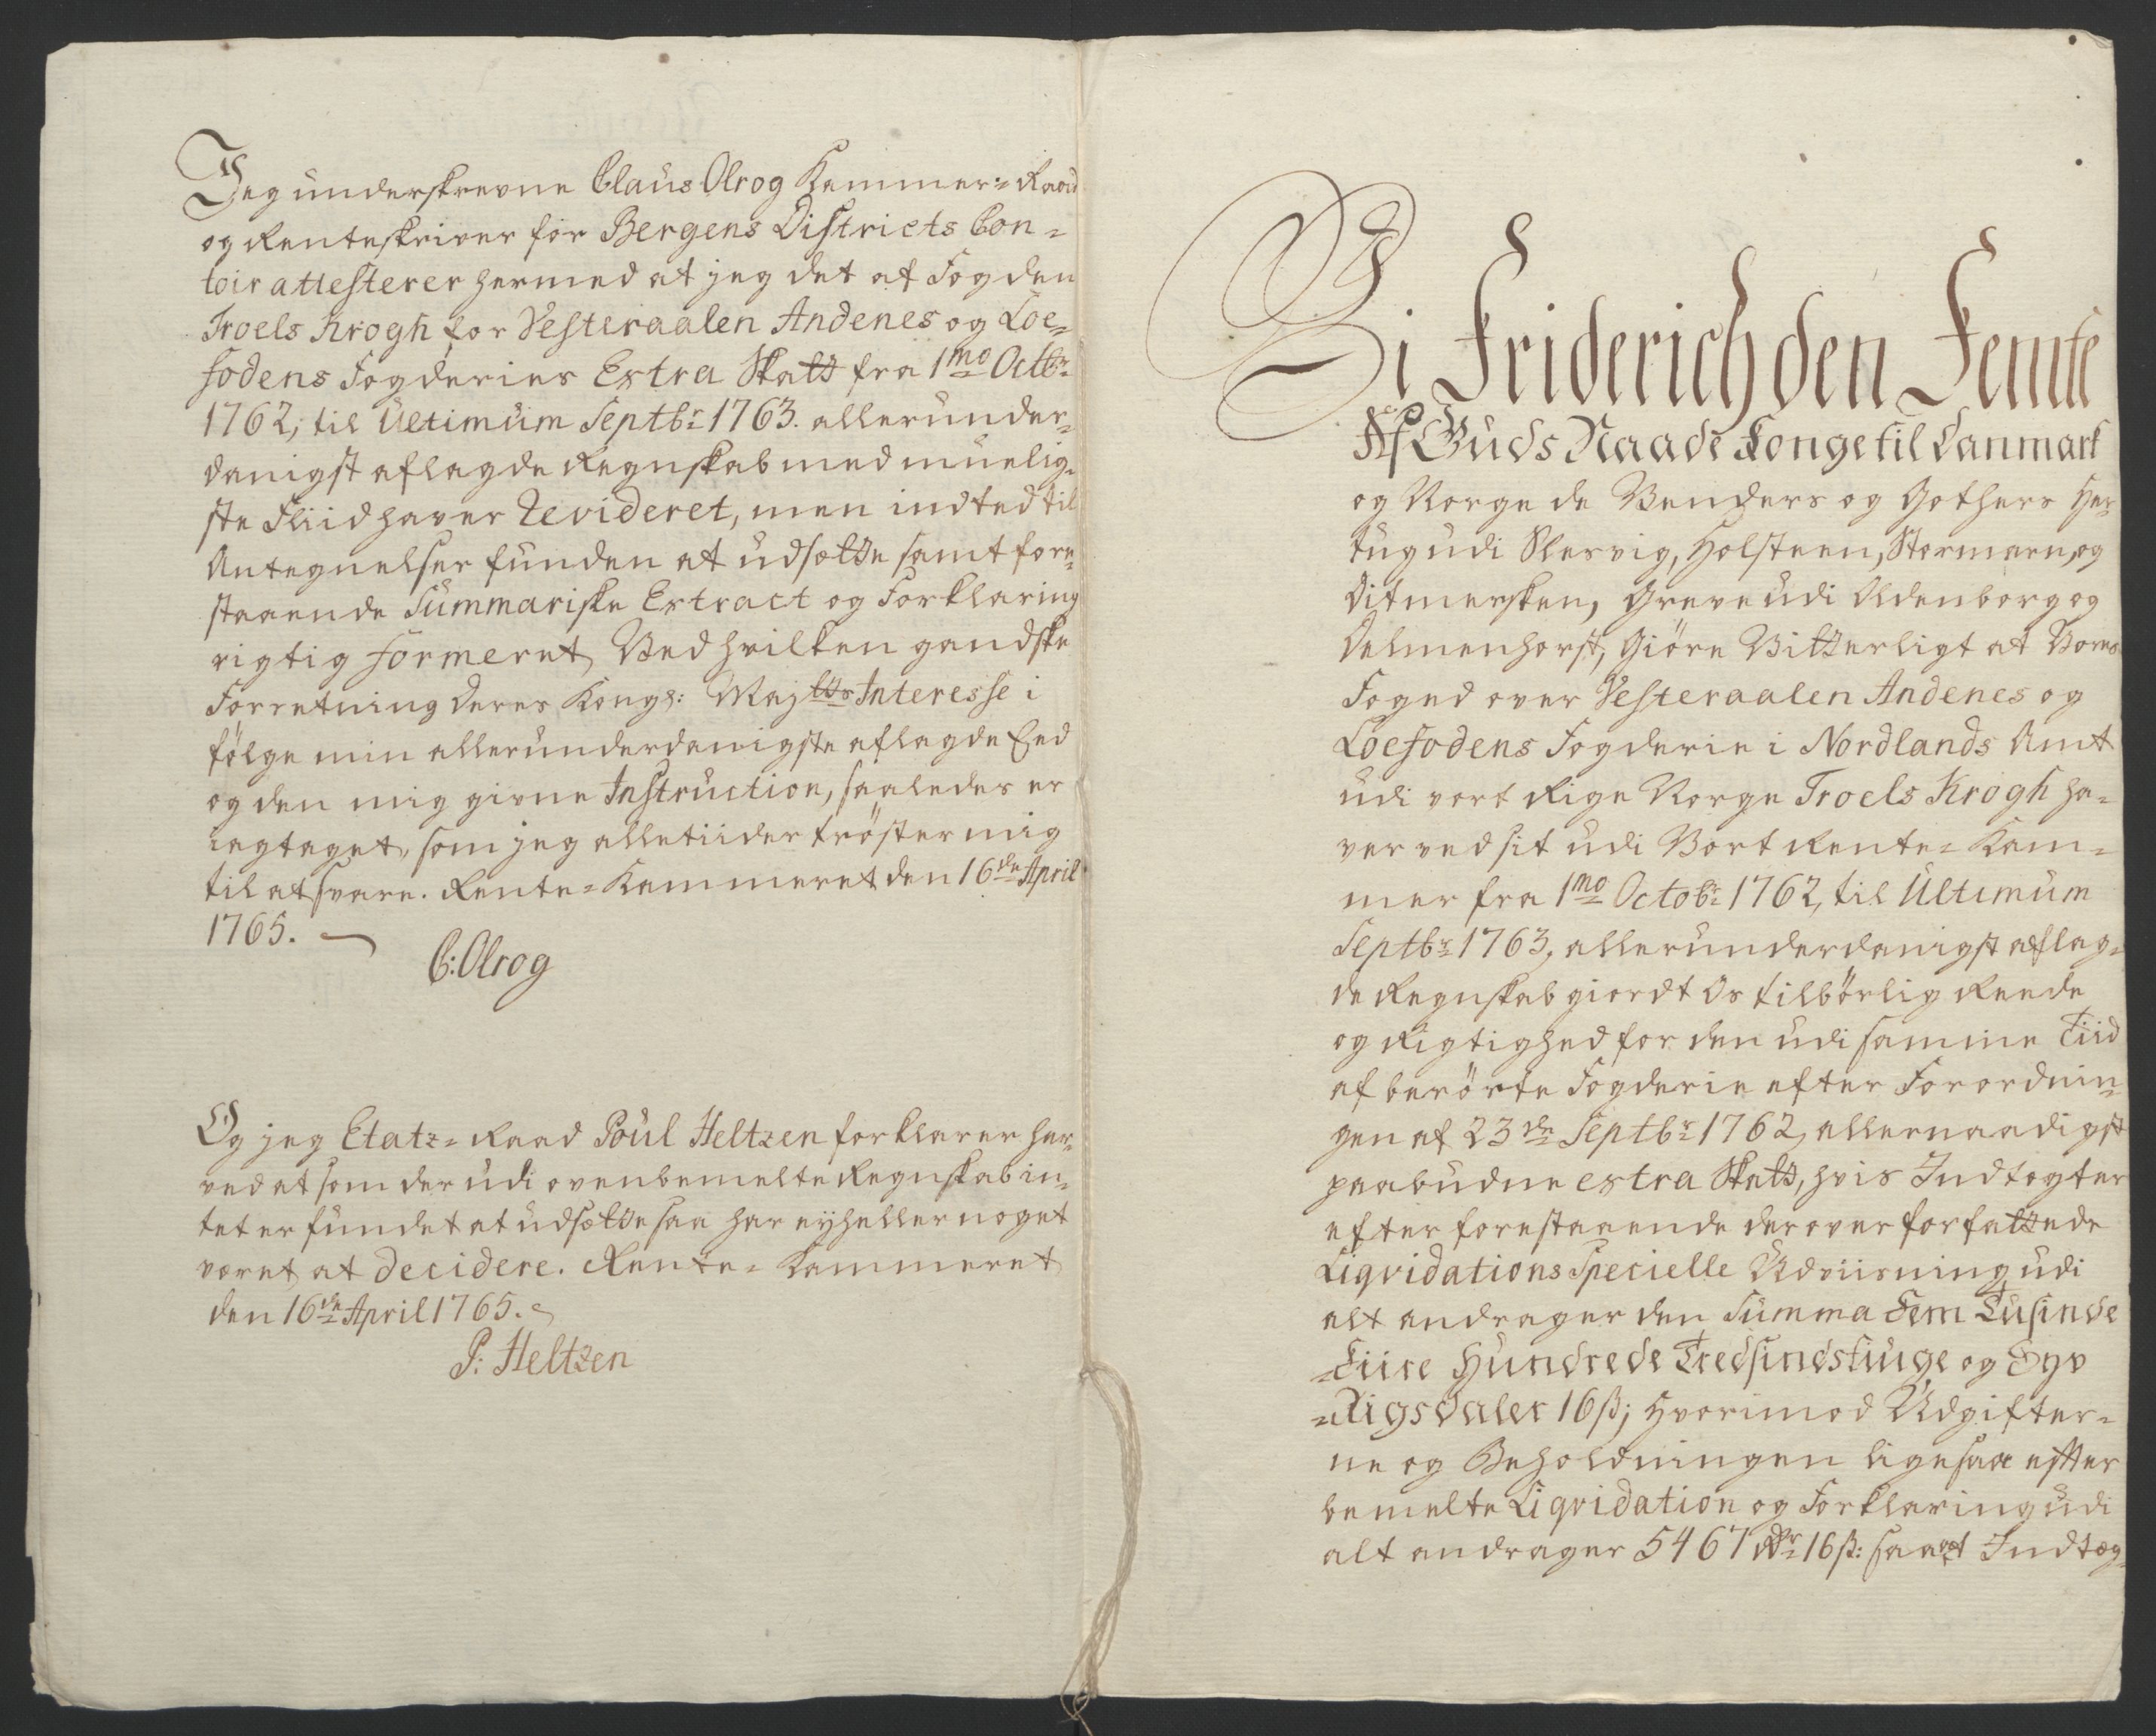 Jeg underskrevne Claus Olrog Kammer=Raad
og Renteskriver for Bergens Districts Con=
toir attesterer hermed at jeg det af Fogden
Troels Krogh for Vesteraalen Andenes og Loe=
fodens Fogderies Extra Skatt fra 1mo Octbr
1762, til Ultimum Septbr 1763. allerunder=
danigst aflagde Regnskab med muelig=
ste Fliid haver Revideret, men indted til
Antegnelser funden at udsætte samt fore=
staaende Summariske Extract og Forklaring
rigtig formeret, Ved hvilken gandske
Forretning Deres Kongl: Maytts Interesse i
følge min allerunderdanigste aflagde Eed
og den mig givne Instruction, saaledes er
iagtaget, som jeg alletiider trøster mig
til at svare. Rente=Kammeret den 16de April
1765.
C: Olrog
Og jeg Etatz=Raad Poul Heltzen forklarer her=
ved at som der udi ovenbemelte Regnskab in=
tet er fundet at udsætte saa har ey heller noget
voret at decidere. Rente=Kammeret
den 16de April 1765.
P: Heltzen
Vi Friderich den Femte
Af Guds Naade Konge til Danmark
og Norge de Venders og Gothers Her=
tug udi Slesvig, Holsteen, Stormarn, og
Ditmersken, Greve udi Oldenborg og
Delmenhorst, Giöre Vitterligt at Vores
Foged over Vesteraalen Andenes og
Loefodens Fogderie i Nordlands Amt
udi vort Rige Norge Troels Krogh ha=
ver ved sit udi Vort Rente=Kam=
mer fra 1mo Octobr 1762, til Ultimum
Septbr 1763, allerunderdanigst aflag=
de Regnskab giordt Os tilbörlig Reede
og Rigtighed for den udi samme Tiid
af berörte Fogderie efter Forordnin=
gen af 23de Septbr 1762, allernaadigst
paabudne extra Skatt, hvis Indtægter
efter forestaaende derover forfattede
Liqvidations Specielle Udviisning udi
alt andrager den Summa Fem Tusinde
Fiire Hundrede Tredsindstiuge og Syv
Rigsdaler 16 ß; Hvorimod Udgifter=
ne og Beholdningen ligesaa efter
bemelte Liqvidation og Forklaring udi
alt andrager 5467 Rdr 16 ß: saa at Indtæg=